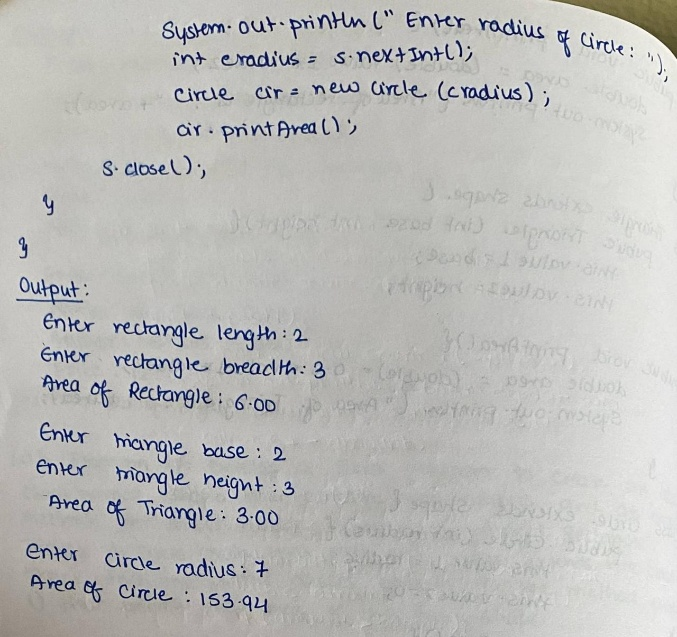 System.out.println(" Enter radius of Circle: ");
int cradius = s.nextInt();
Circle cir = new Circle (cradius);
cir.printArea();
s.close();
}
}
Output:
Enter rectangle length: 2
Enter rectangle breadth: 3
Area of Rectangle: 6.00
Enter triangle base : 2
Enter triangle height : 3
Area of Triangle: 3.00
Enter circle radius: 7
Area of Circle : 153.94